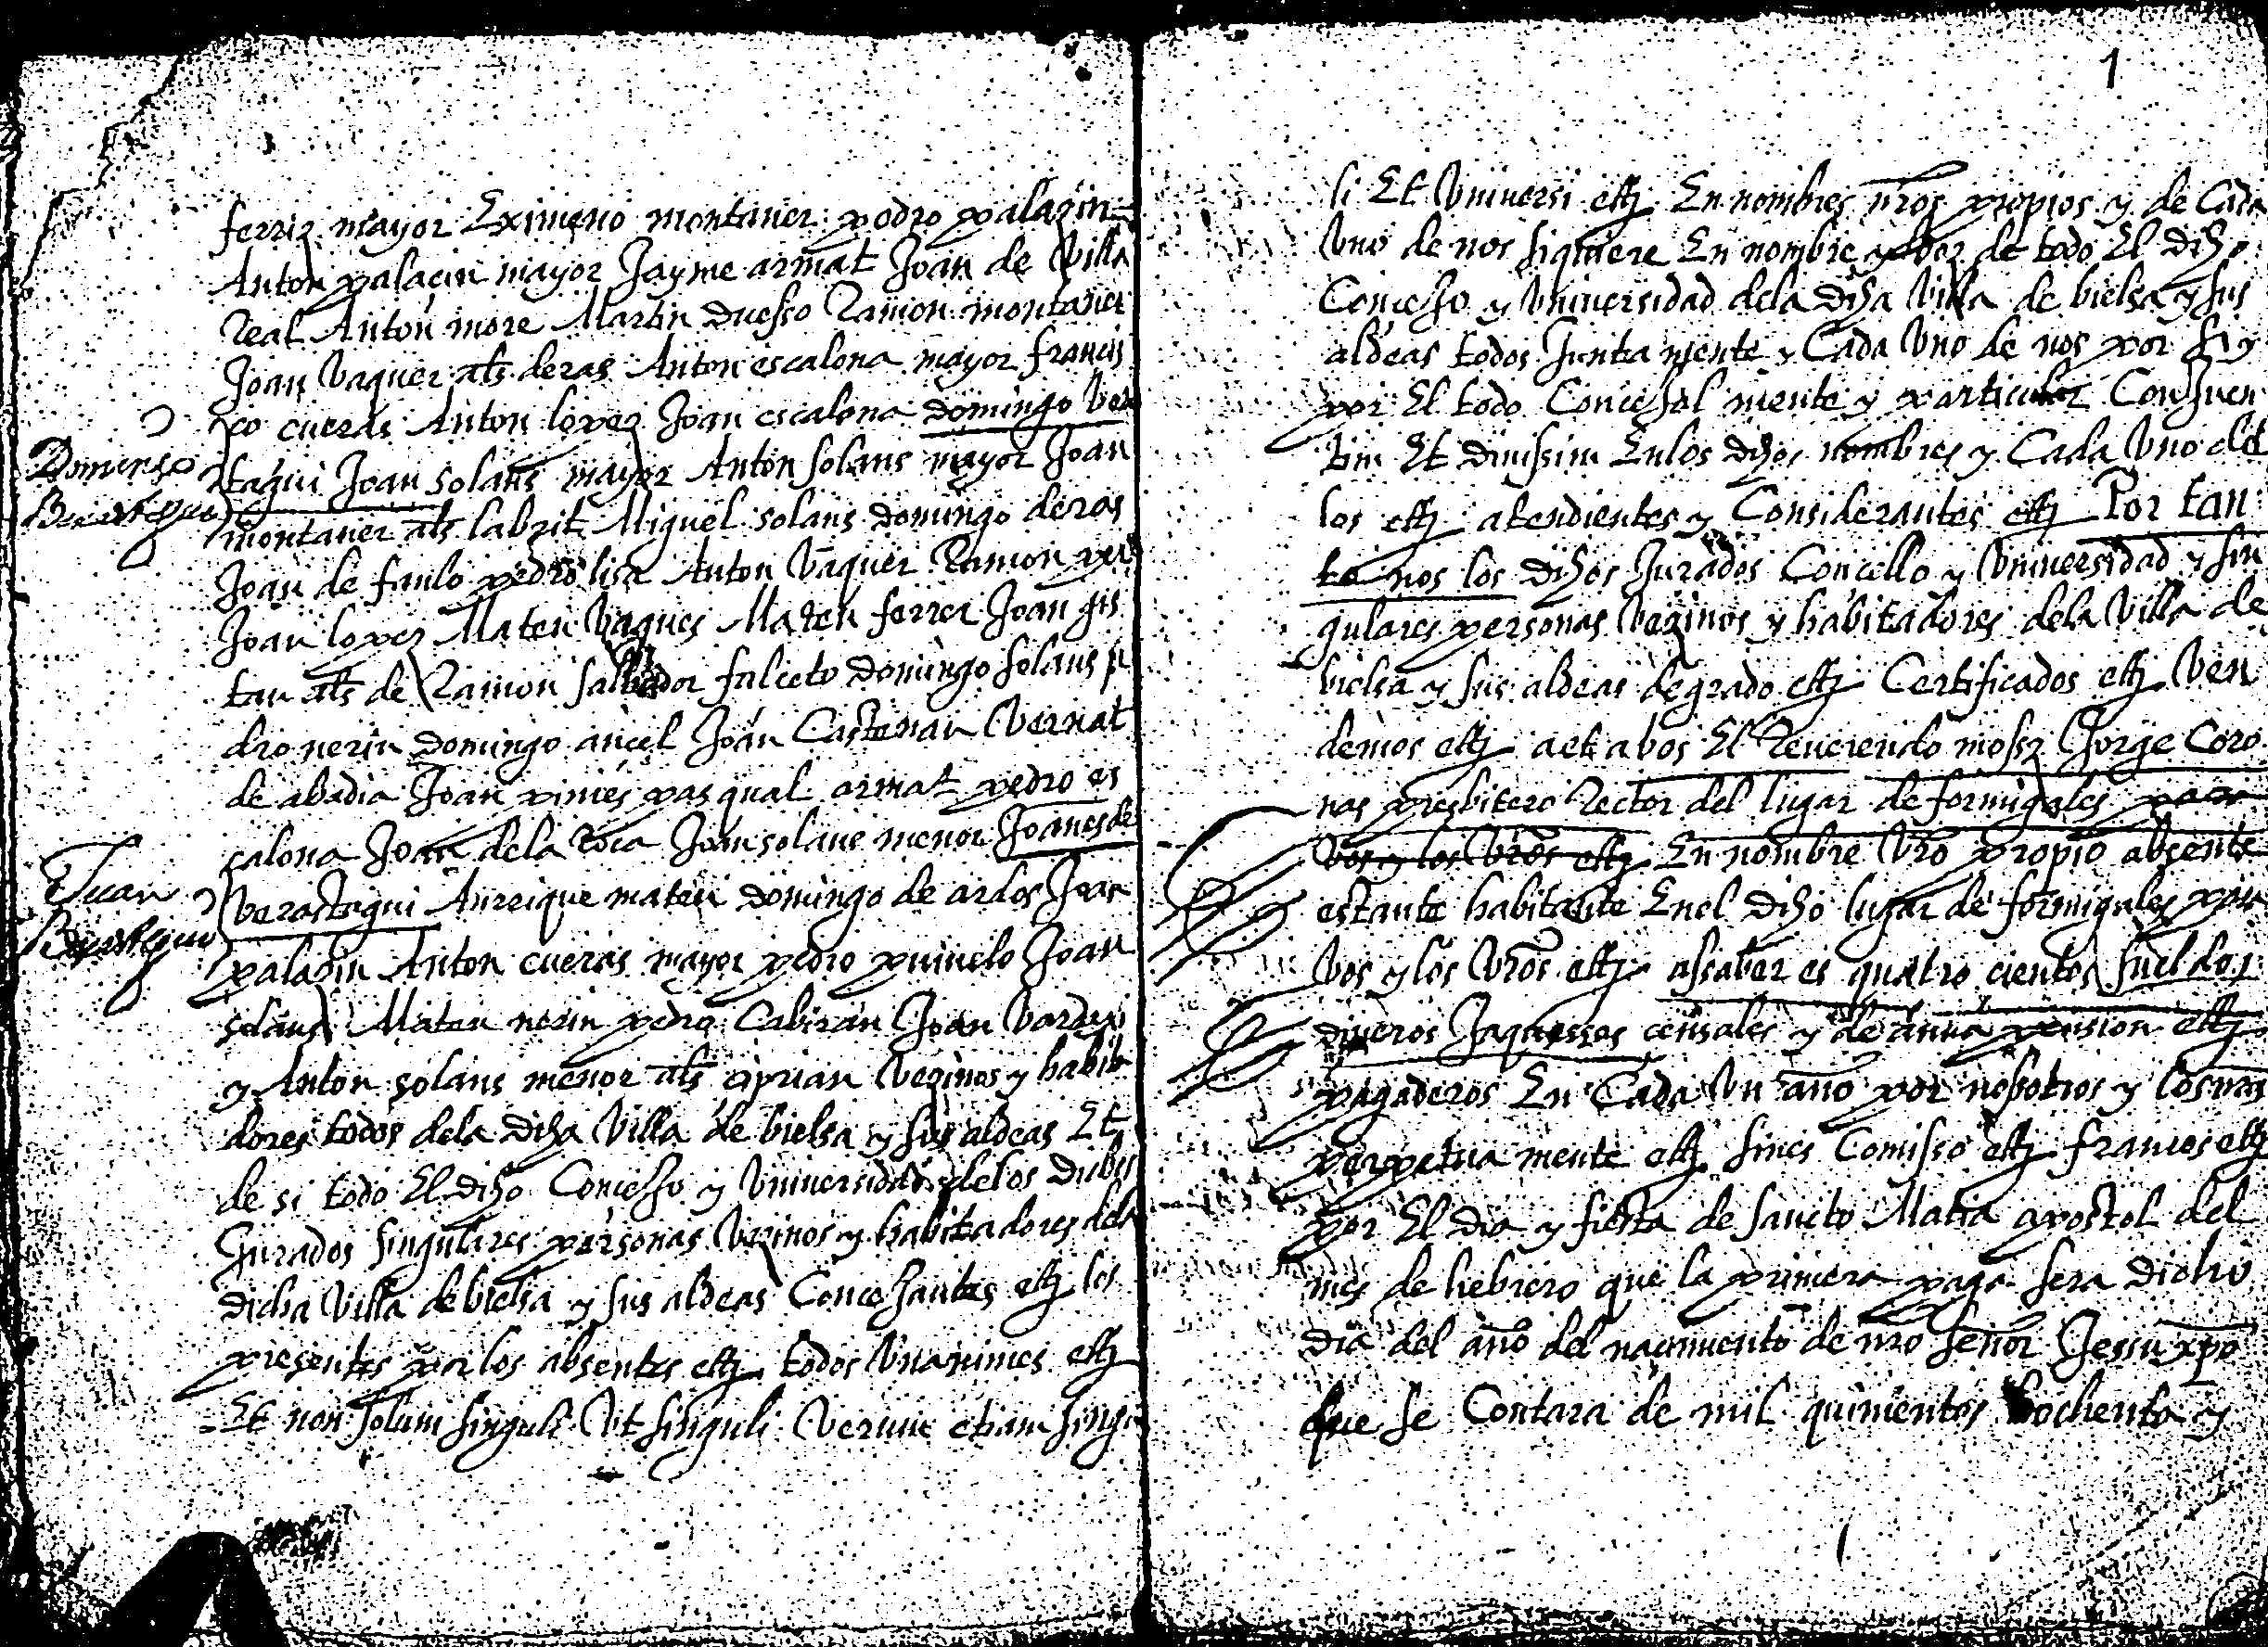 ferriz mayor Eximeno montaner pedro palazin
Anton palacin mayor Jayme armat Joan de Villa
Real Anton more Martin duesso Ramon montaner
Joan Vaquer als deras Anton escalona mayor francis
co cueras Anton lopez Joan escalona domingo Ver
Domingo
tagui Joan solans mayor Anton solans mayor Joan
montaner als labrit Miguel solans domingo deras
Joan de fanlo pedro lisa Anton Vaquer Ramon
Joan lopez Mateu Vaques Mateu ferrer Joan gis
tau als de Ramon salbador falceto domingo solans
dro nerin domingo ancel Joan Castenan Vernat
de abadia Joan pinies pasqual armat pedro es
calona Joan dela Roca Joan solans menor Joanes de
Juan
Verastegui Anrrique mateu domingo de ardos Joan
palazin Anton cueras mayor pedro Joan
solans Mateu nerin pedro Cabiran Joan
y Anton solans menor als ciprian Vezinos y habita
dores todos dela diha Villa de bielsa y sus aldeas Et
de si todo El diho Concesso y Universidad delos
Jurados singulares personas Vezinos y habitadores dela
dicha Villa de bielsa y sus aldeas Concessantes etc los
presentes por los absentes etc todos Unanimes etc
Et non solum singuli Ut singuli Verum etiam singu
1
li Et Universi etc En nombres nros propios y de Cada
Uno de nos siquiere En nombre y boz de todo El diho
Concesso y Universidad dela diha Villa de bielsa y sus
aldeas todos Junta mente y Cada Uno de nos por si y
por El todo Concessal mente y particular Conjunc
tim Et diuissim Enlos dihos nombres y Cada Uno de
los etc atendientes y Considerantes etc Por tan
to nos los dihos Jurados Concello y Universidad y sin
gulares personas Vezinos y habitadores dela Villa de
bielsa y sus aldeas de grado etc Certificados etc Ven
demos etc a vos El Reuerendo Jorge Coro
nas presbitero Rector del lugar de formigales para
Vos y los Vros etc En nombre Vro propio absente
estante habitante Enel diho lugar de formigales para
Vos y los Vros etc assaber es quatro cientos sueldos
dineros Jaquesses censales y de annua pension etc
pagaderos En Cada Un año por nosotros y los nros
perpetua mente etc sines Comisso etc francos etc
por El dia y fiesta de sancto Matia apostol del
mes de hebrero que la primera paga sera dicho
dia del año del nacimiento de nro señor Jessu xpo
que se Contara de mil quinientos hochenta y